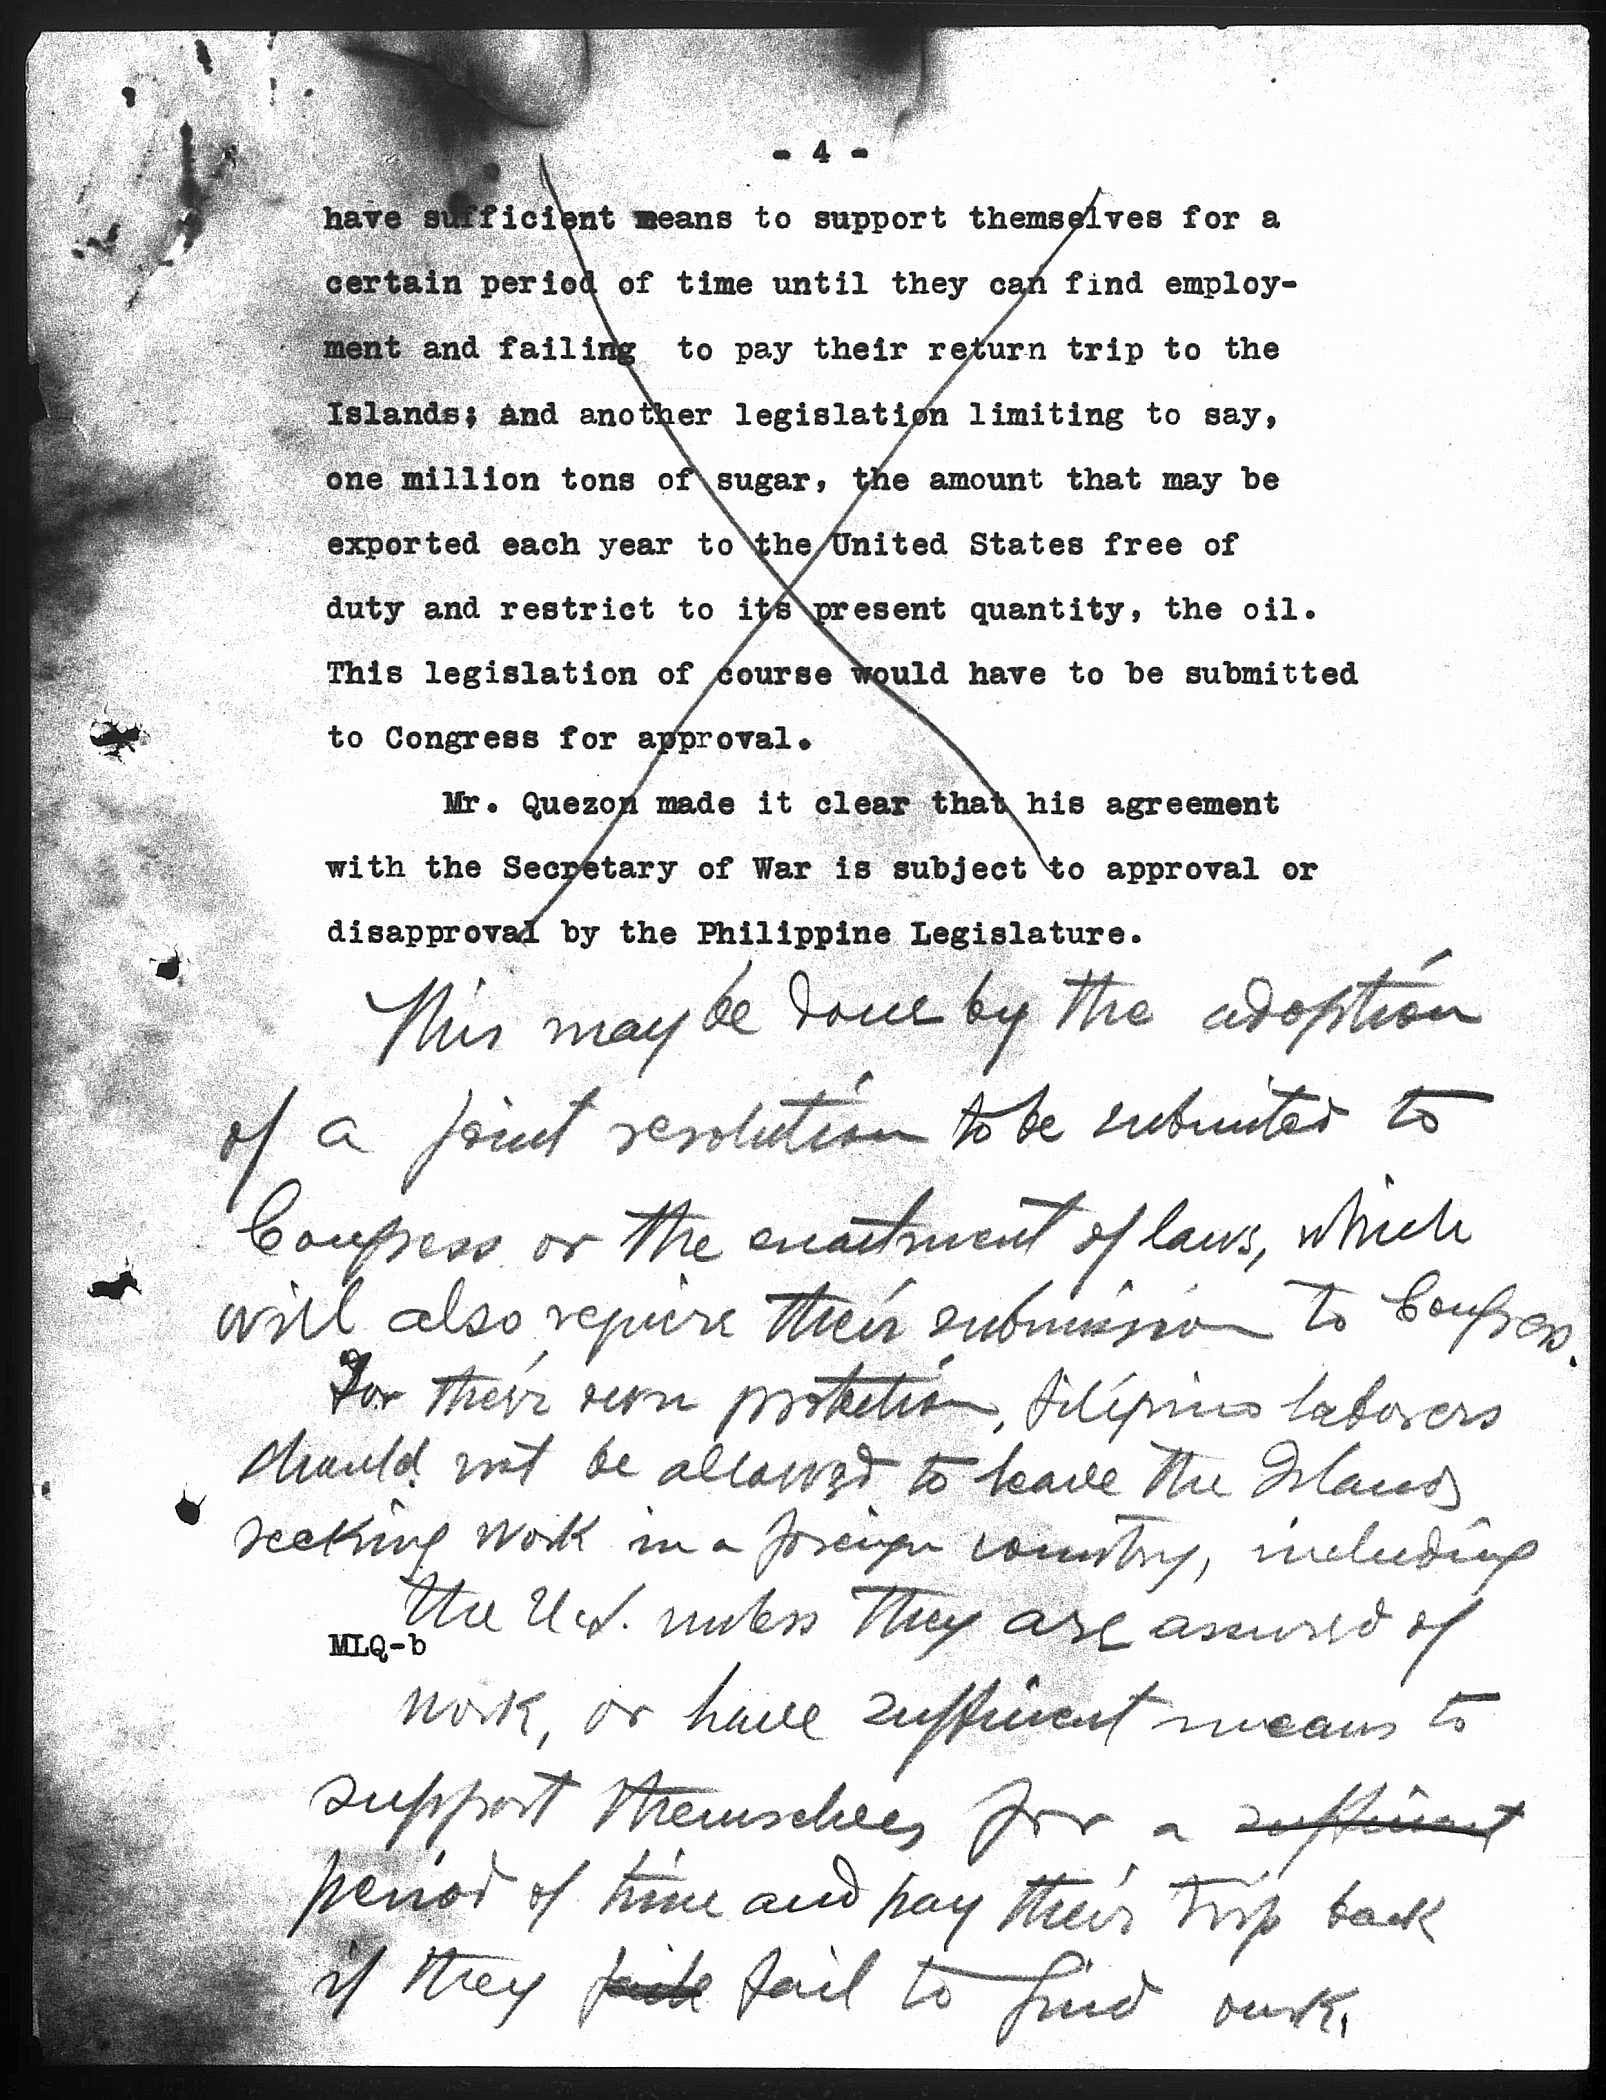 - 4 -
have sufficient means to support themselves for a
certain period of time until they can find employ-
ment and failing to pay their return trip to the
Islands; And another legislation limiting to say,
one million tons of sugar, the amount that may be
exported each year to the United States free of
duty and restrict to its present quantity, the oil.
This legislation of course would have to be submitted
to Congress for approval.
Mr. Quezon made it clear that his agreement
with the Secretary of War is subject to approval or
disapproval by the Philippine Legislature.
This may be done by the adoption
of a joint resolution to be submited to
Congress or the enactment of laws, which
will also require their submission to Congress.
For their own protection, Filipino laborers
should not be allowed to leave the Islands
seeking work in a foreign country, including
the U.S. unless they are assured of
MLQ-b
work, or have sufficient means to
support themselves for a sufficient
period of time and pay their trip back
if they fail to find work.